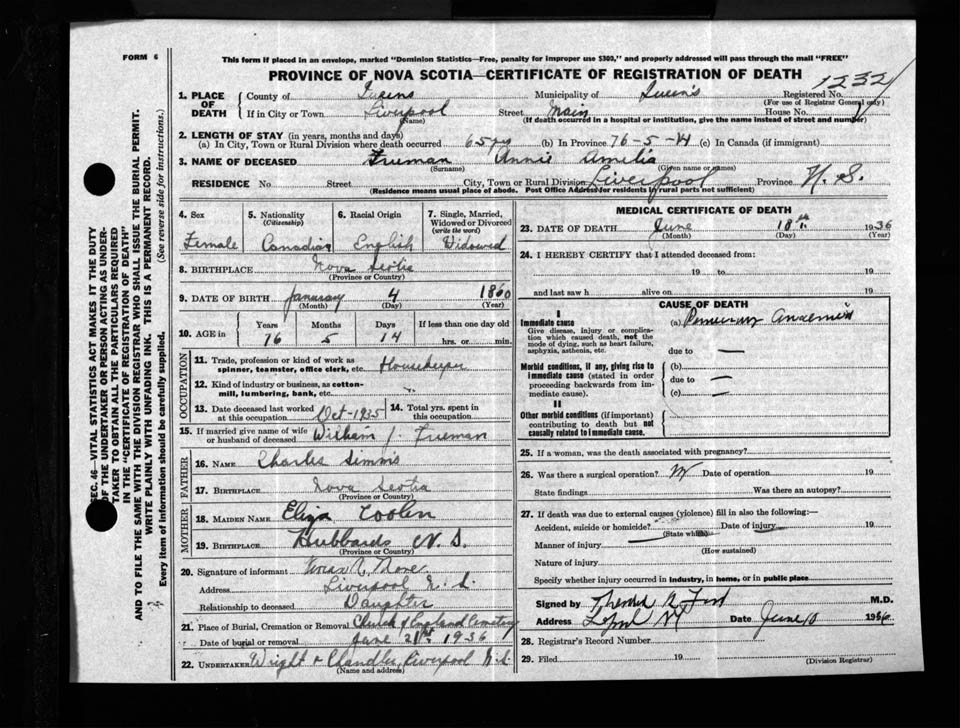 FORM 6
This form if placed in an envelope, marked "Dominion Statistics—Free, penalty for improper use $300," and properly addressed will pass through the mail "FREE"
PROVINCE OF NOVA SCOTIA—CERTIFICATE OF REGISTRATION OF DEATH
1232
1. PLACE OF DEATH
County of Queens Municipality of Queen's Registered No.
(For use of Registrar General only)
If in City or Town Liverpool Street Main House No.
(Name) (If death occurred in a hospital or institution, give the name instead of street and number)
2. LENGTH OF STAY (in years, months and days)
(a) In City, Town or Rural Division where death occurred 65 yrs (b) In Province 76-5-14 (c) In Canada (if immigrant)
3. NAME OF DECEASED Freeman Annie Amelia
(Surname) (Given name or names)
RESIDENCE No Street City, Town or Rural Division Liverpool Province N. S.
(Residence means usual place of abode. Post Office Address for residents in rural parts not sufficient)
4. Sex Female
5. Nationality (Citizenship) Canadian
6. Racial Origin English
7. Single, Married, Widowed or Divorced (write the word) Widowed
8. BIRTHPLACE Nova Scotia
(Province or Country)
9. DATE OF BIRTH January 4 1860
(Month) (Day) (Year)
10. AGE in Years Months Days If less than one day old
76 5 14 hrs. or min.
OCCUPATION
11. Trade, profession or kind of work as spinner, teamster, office clerk, etc. Housekeeper
12. Kind of industry or business, as cotton-mill, lumbering, bank, etc.
13. Date deceased last worked at this occupation Oct-1935
14. Total yrs. spent in this occupation
15. If married give name of wife or husband of deceased William J. Freeman
FATHER
16. NAME Charles Simms
17. BIRTHPLACE Nova Scotia
(Province or Country)
MOTHER
18. MAIDEN NAME Eliza Coolen
19. BIRTHPLACE Hubbards N. S.
(Province or Country)
20. Signature of informant
Address Liverpool N. S.
Relationship to deceased Daughter
21. Place of Burial, Cremation or Removal Church of England Cemetery
Date of burial or removal June 21st 1936
22. UNDERTAKER Wright & Chandler, Liverpool N.S.
(Name and address)
MEDICAL CERTIFICATE OF DEATH
23. DATE OF DEATH June 18th 1936
(Month) (Day) (Year)
24. I HEREBY CERTIFY that I attended deceased from:
19 to 19
and last saw h alive on 19
CAUSE OF DEATH
I
Immediate cause
Give disease, injury or complication which caused death, not the mode of dying, such as heart failure, asphyxia, asthenia, etc.
(a) Pernicious Anaemia
due to —
Morbid conditions, if any, giving rise to immediate cause (stated in order proceeding backwards from immediate cause).
(b)
due to —
(c) —
II
Other morbid conditions (if important) contributing to death but not causally related to immediate cause.
25. If a woman, was the death associated with pregnancy?
26. Was there a surgical operation? Date of operation 19
State findings Was there an autopsy?
27. If death was due to external causes (violence) fill in also the following:—
Accident, suicide or homicide? Date of injury 19
(State which)
Manner of injury
(How sustained)
Nature of injury
Specify whether injury occurred in industry, in home, or in public place
Signed by M.D.
Address Date June 1936
28. Registrar's Record Number
29. Filed 19
(Division Registrar)
SEC. 46—VITAL STATISTICS ACT MAKES IT THE DUTY
OF THE UNDERTAKER OR PERSON ACTING AS UNDER-
TAKER TO OBTAIN ALL THE PARTICULARS REQUIRED
IN THE "CERTIFICATE OF REGISTRATION OF DEATH"
AND TO FILE THE SAME WITH THE DIVISION REGISTRAR WHO SHALL ISSUE THE BURIAL PERMIT.
WRITE PLAINLY WITH UNFADING INK. THIS IS A PERMANENT RECORD.
Every item of information should be carefully supplied. (See reverse side for instructions.)